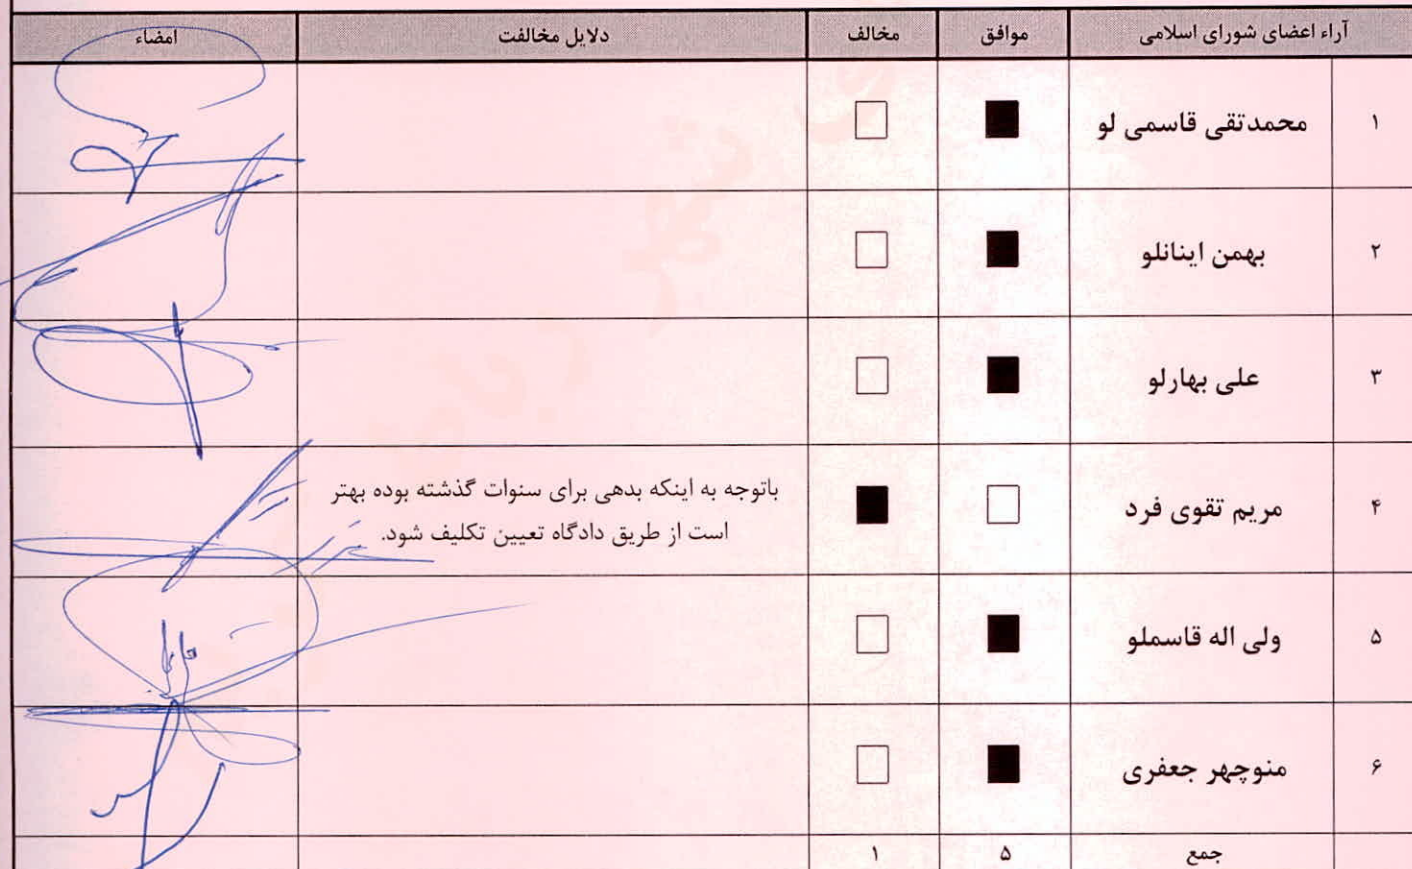 آراء اعضای شورای اسلامی موافق مخالف دلایل مخالفت امضاء
۱ محمدتقی قاسمی لو
۲ بهمن اینانلو
۳ علی بهارلو
۴ مریم تقوی فرد باتوجه به اینکه بدهی برای سنوات گذشته بوده بهتر
است از طریق دادگاه تعیین تکلیف شود.
۵ ولی اله قاسملو
۶ منوچهر جعفری
جمع ۵ ۱